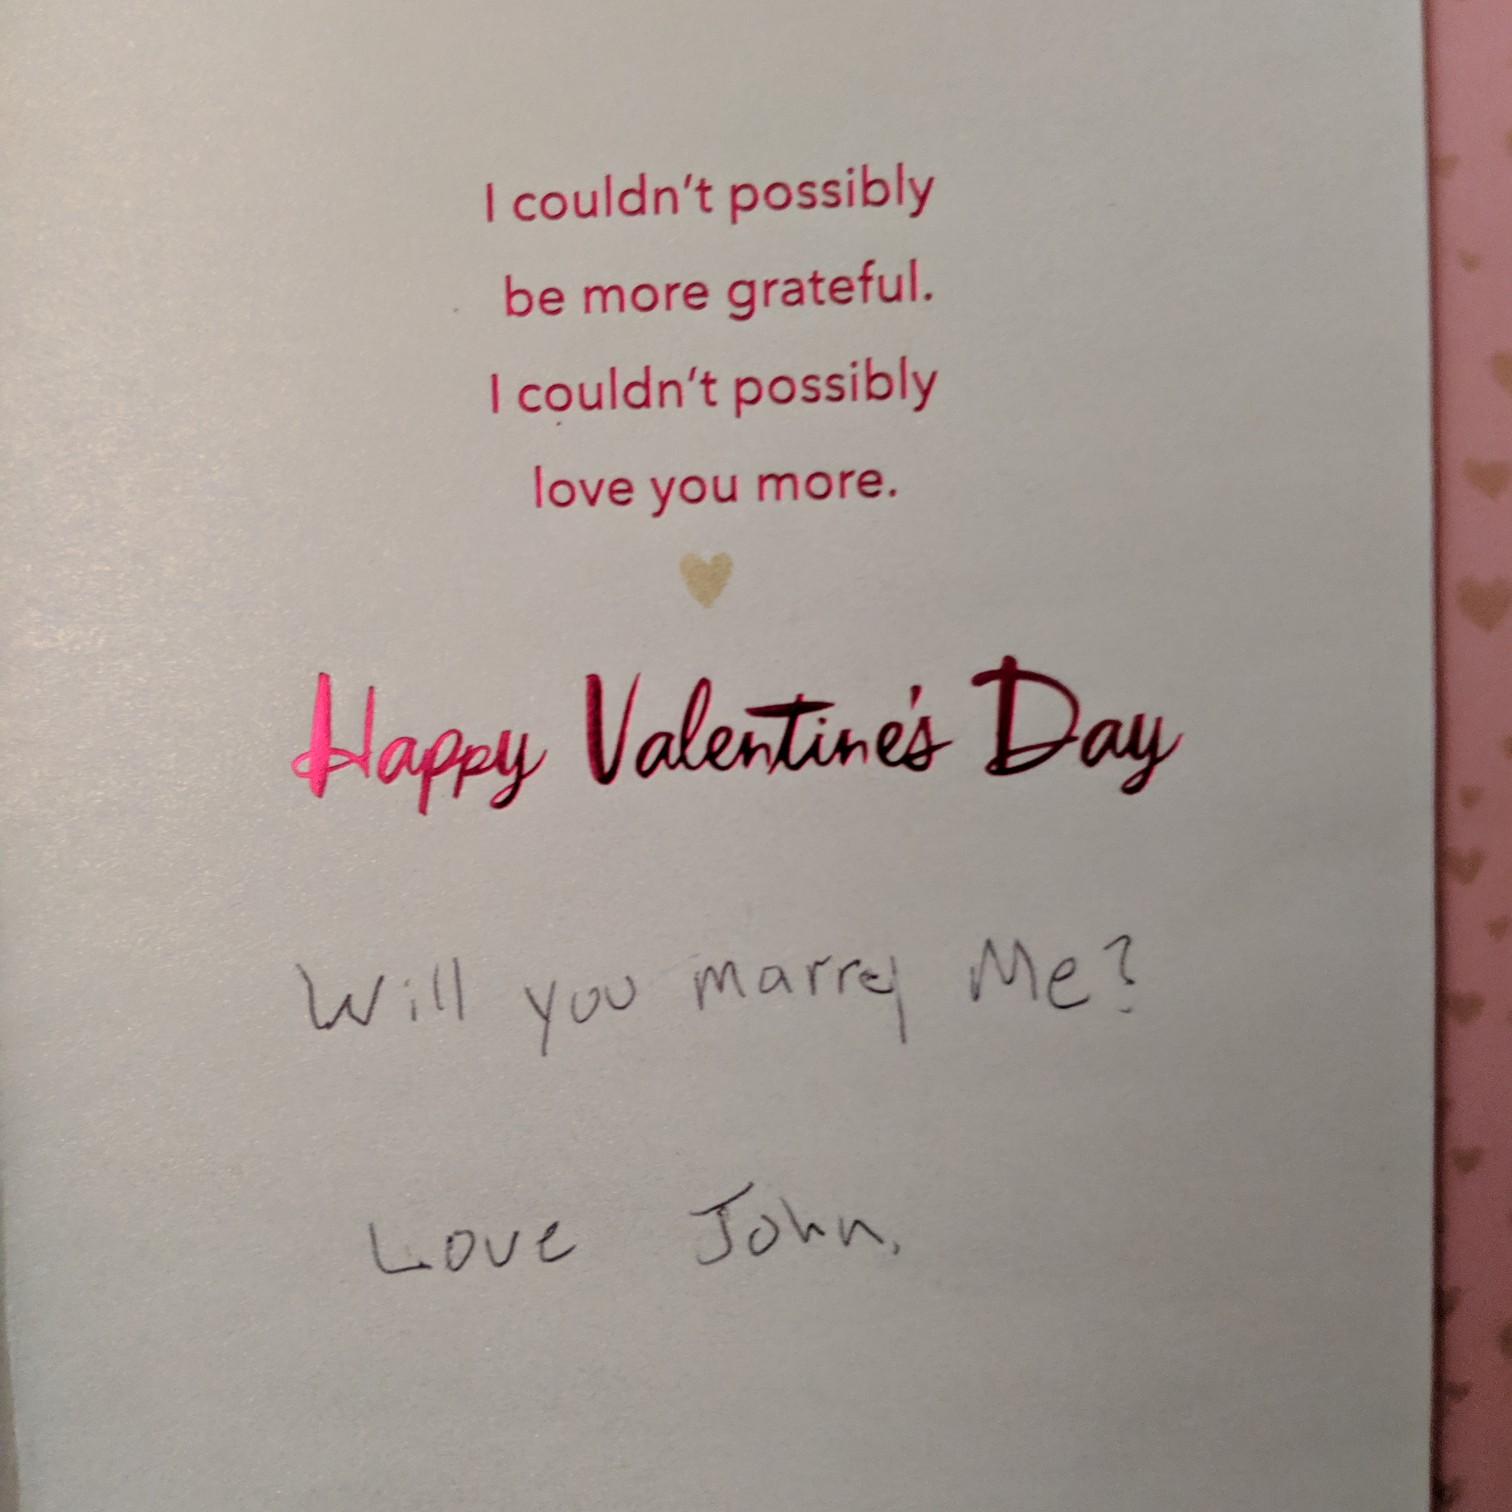 I couldn't possibly
be more grateful.
I couldn't possibly
love you more.
Happy Valentine's Day
Will you marrey Me?
Love John,